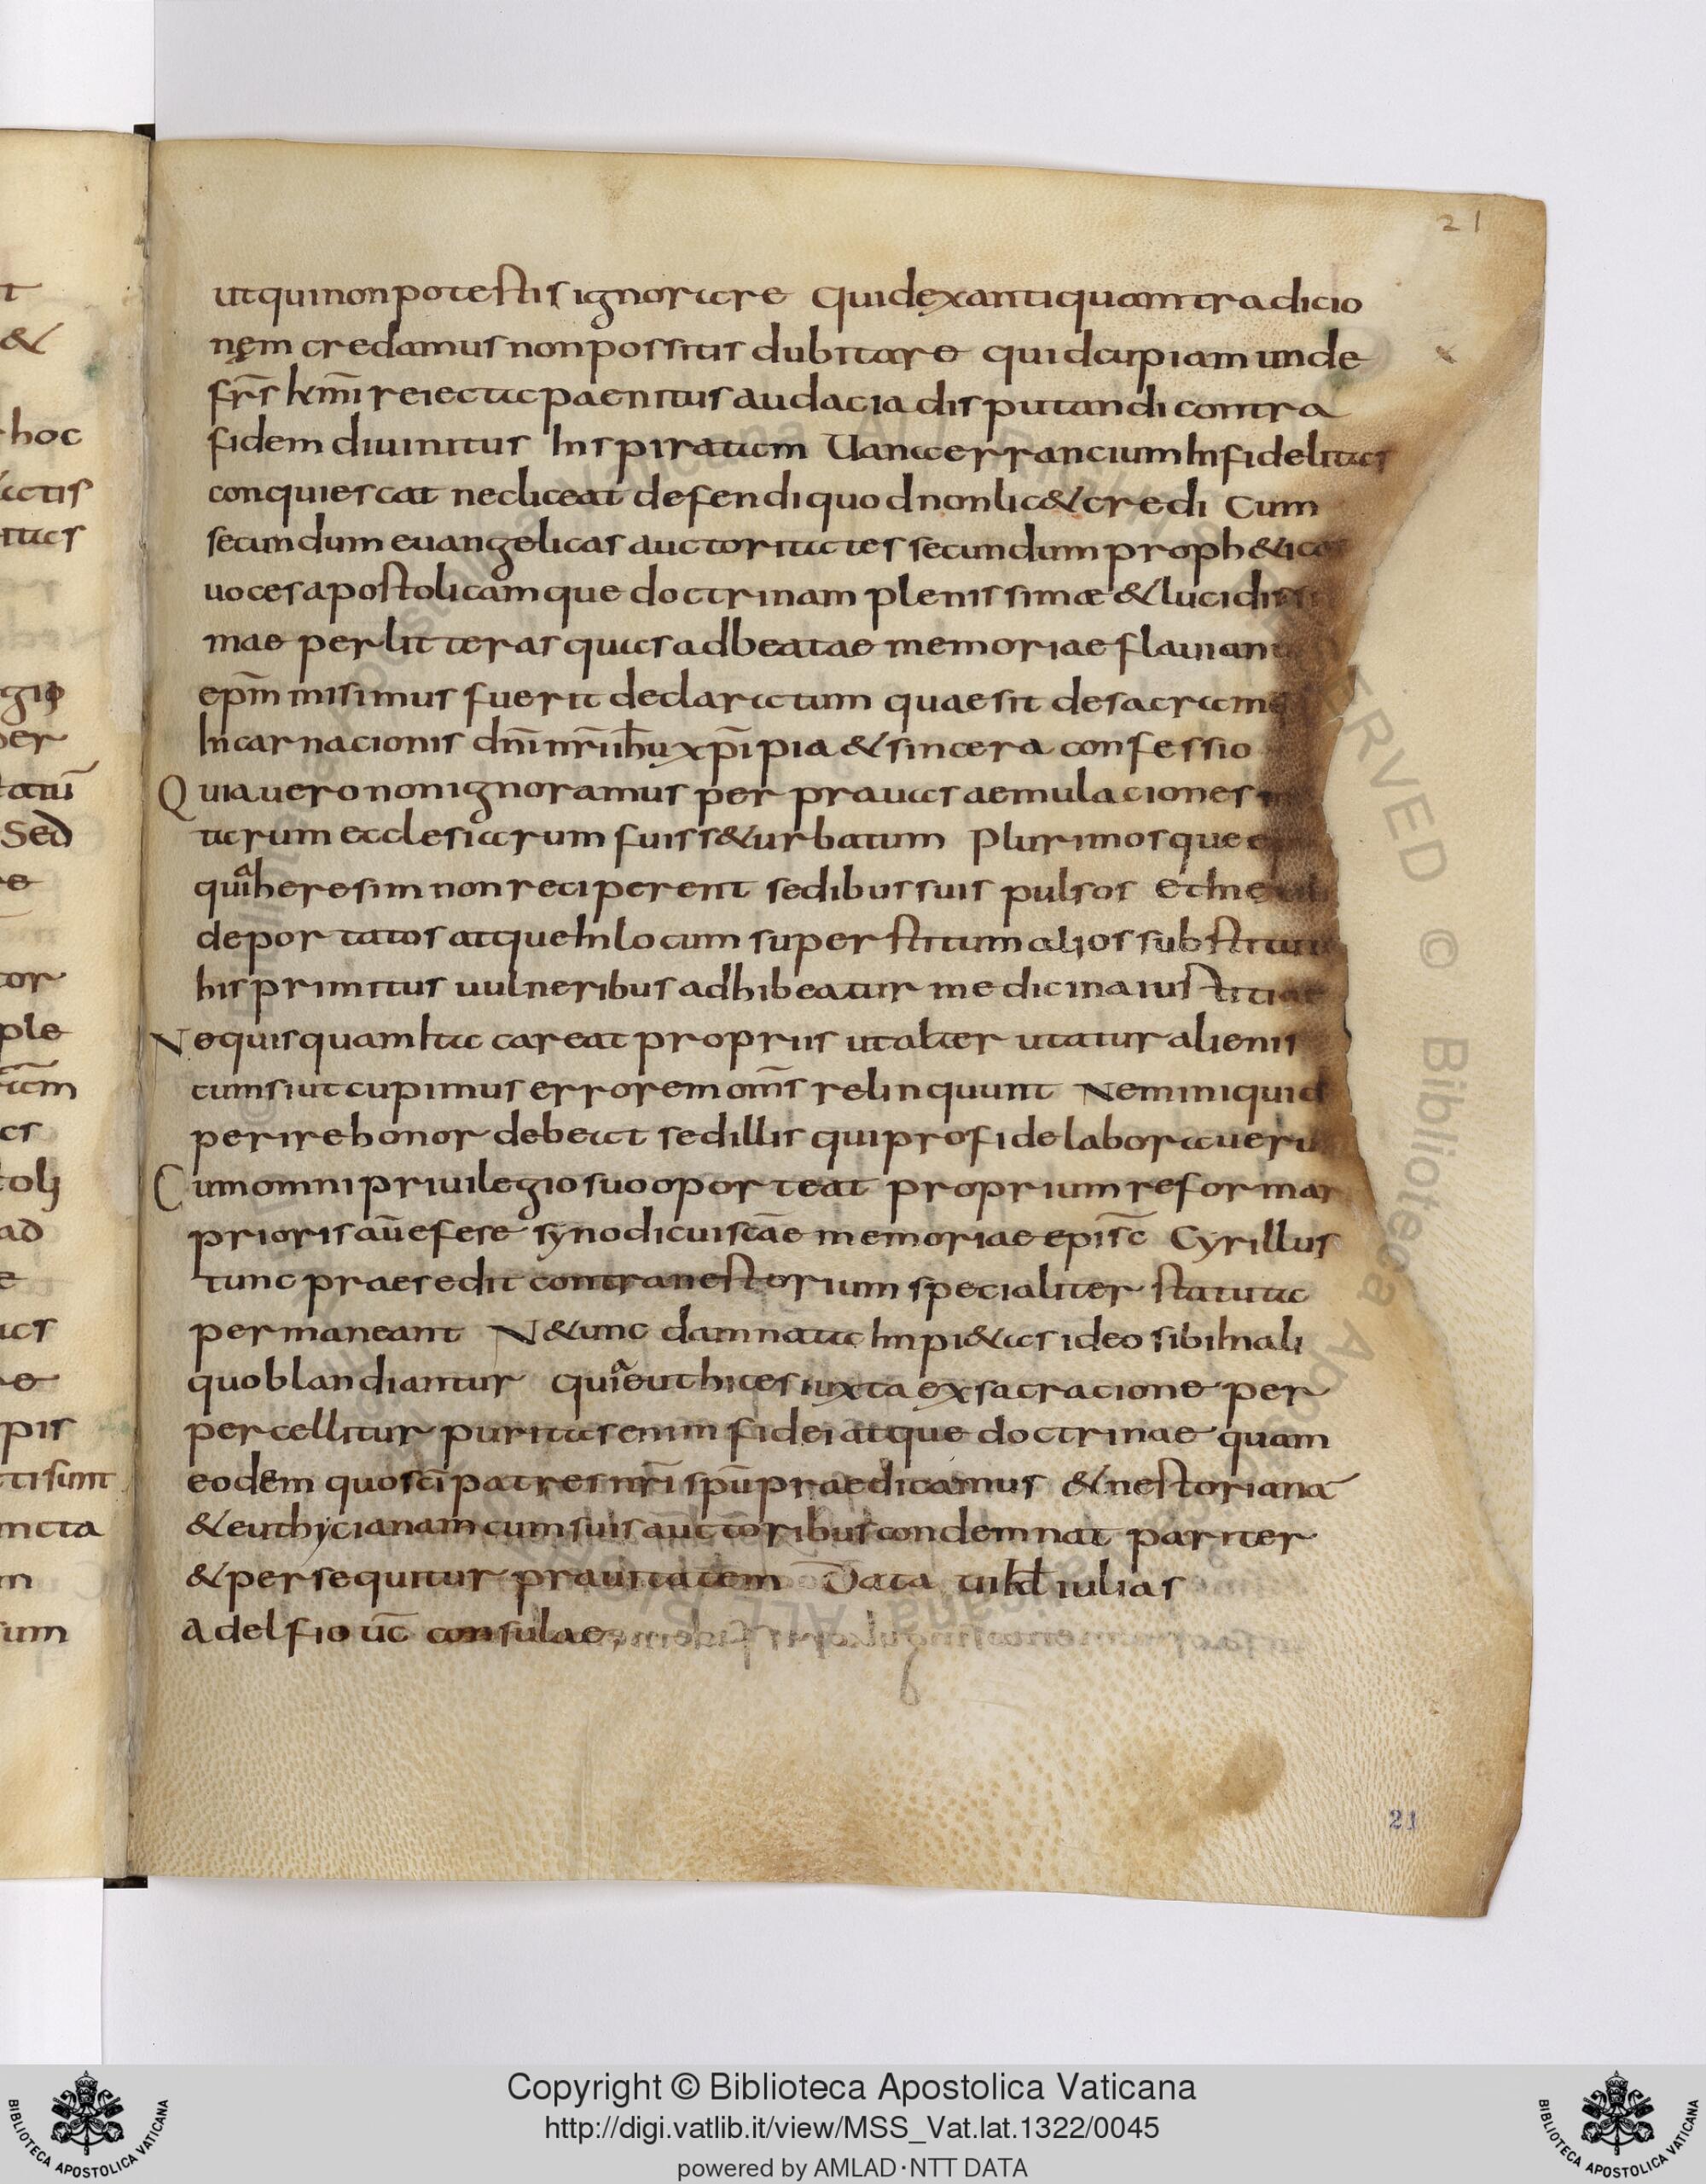 21
ut qui non potestis ignorare quid ex antiqua mtradicio
nęm credamus non possitis dubitare quid cupiam unde
fr̄s km̄i reiecta paenitus audacia disputandi contra
fidem diuinitus Inspiratam Uana errancium Infidelitas
conquiescat nec liceat defendi quod non lic& credi Cum
secundum euangelicas auctoritates secundum proph&icas
uoces apostolicamque doctrinam plenissimæ & lucidissi
mae per litteras quas ad beatae memoriae flauian
ep̄m misimus fuerit declaratum quae sit de sacrame
Incarnacionis dn̄i nr̄i ih̄u xp̄i pia & sincera confessio
Quia uero non ignoramus per prauas aemulaciones
tarum ecclesiarum fuiss& urbatum Plurimosque
quia heresim non reciperent sedibus suis pulsos et In
deportatos atque In locum superstitum alios substitu
his primitus uulneribus adhibeatur medicina iustitiae
Ne quisquam Ita careat propriis ut alter utatur alienis
cum si ut cupimus errorem om̄s relinquunt Nemini quid
perire honor debeat sed illis qui pro fide laboraueru
Cum omni priuilegio suo oporteat proprium reformar
prioris aū efese synodi cui sc̄ae memoriae episc̄ Cyrillus
tunc praesedit contra nestorium specialiter statuta
permaneant N& tunc damnata Impi&as ideo sibi In ali
quo blandiantur quia euthices iuxta exsacracione per
percellitur puritas enim fidei atque doctrinae quam
eodem quo sc̄i patres nr̄i sp̄u praedicamus & nestorianā
& euthycianam cum suis auctoribus condemnat pariter
& persequitur prauitatem Data uii kl̄d iulias
Adelfio uc̄ consulae,
21
Copyright © Biblioteca Apostolica Vaticana
http://digi.vatlib.it/view/MSS_Vat.lat.1322/0045
powered by AMLAD·NTT DATA
BIBLIOTECA APOSTOLICA VATICANA
BIBLIOTECA APOSTOLICA VATICANA